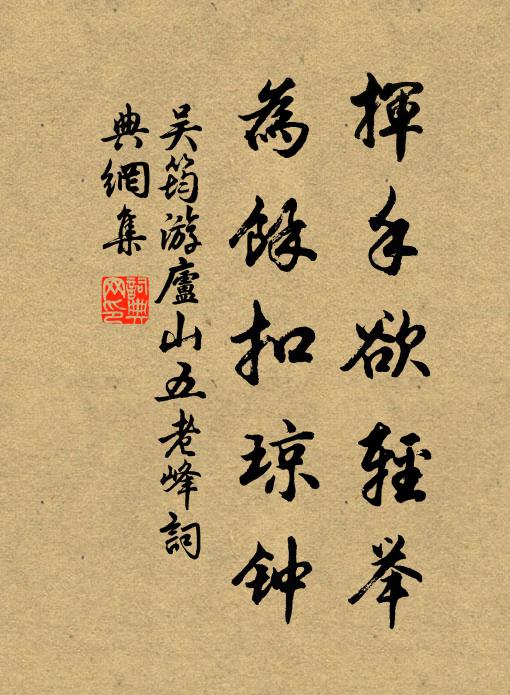 揮手欲輕举
為餘扣琼钟
吴筠游廬山五老峰詞
典網集
詞典
网印